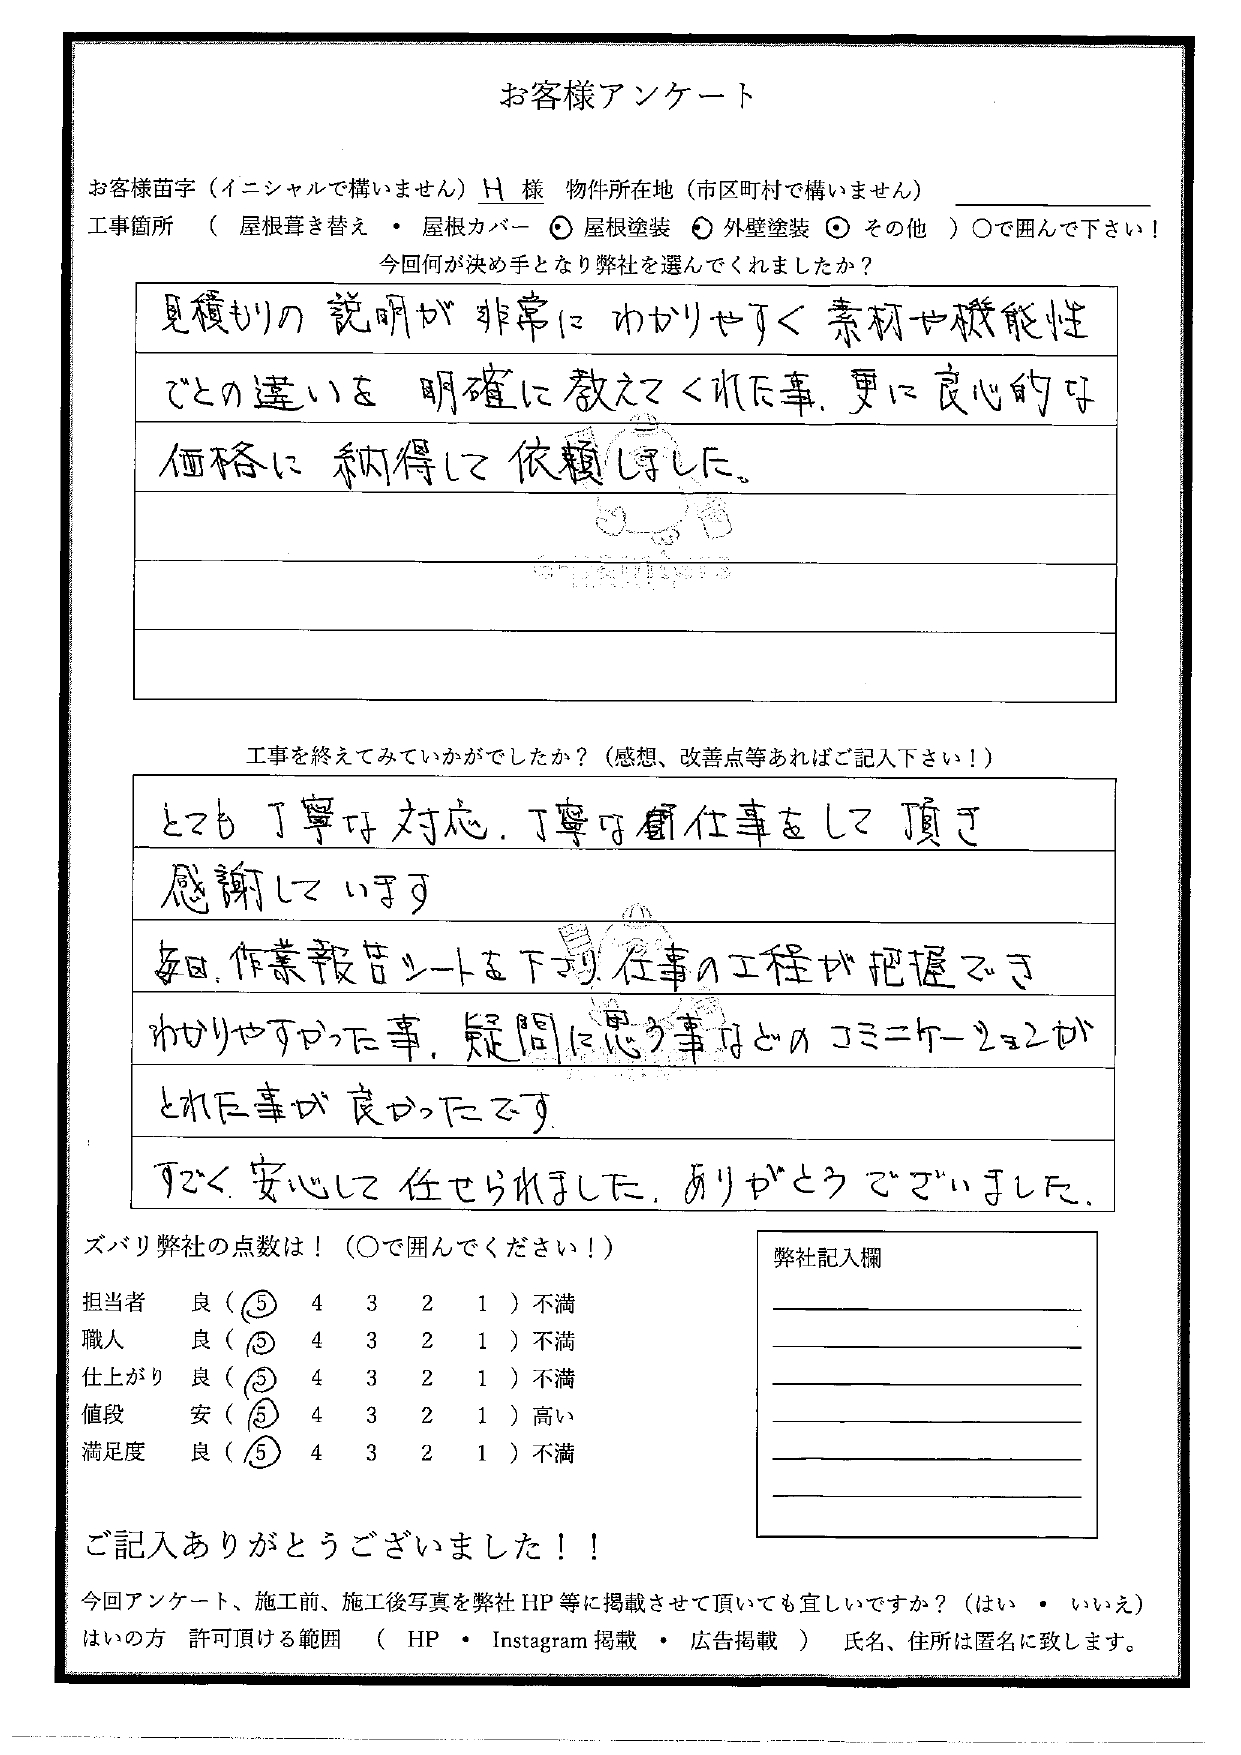 お客様アンケート
お客様苗字（イニシャルで構いません） H 様　物件所在地（市区町村で構いません）
工事箇所　（　屋根葺き替え　・　屋根カバー　・　屋根塗装　・　外壁塗装　・　その他　）○で囲んで下さい！
今回何が決め手となり弊社を選んでくれましたか？
見積もりの 説明が 非常に わかりやすく 素材や機能性
でとの違いを 明確に教えてくれた事、更に良心的な
価格に 納得して 依頼しました。
工事を終えてみていかがでしたか？（感想、改善点等あればご記入下さい！）
とても 丁寧な 対応、丁寧な お仕事をして 頂き
感謝して います
毎日、作業報告シートを下さり、仕事の工程が把握でき
わかりやすかった事、疑問に思う事などの コミニケーションが
とれた事が 良かったです
すごく 安心して 任せられました、ありがとうございました、
ズバリ弊社の点数は！（○で囲んでください！）
担当者　良（ 5　4　3　2　1 ）不満
職人　良（ 5　4　3　2　1 ）不満
仕上がり　良（ 5　4　3　2　1 ）不満
値段　安（ 5　4　3　2　1 ）高い
満足度　良（ 5　4　3　2　1 ）不満
弊社記入欄
ご記入ありがとうございました！！
今回アンケート、施工前、施工後写真を弊社 HP 等に掲載させて頂いても宜しいですか？（はい　・　いいえ）
はいの方　許可頂ける範囲　（　HP　・　Instagram 掲載　・　広告掲載　）　氏名、住所は匿名に致します。